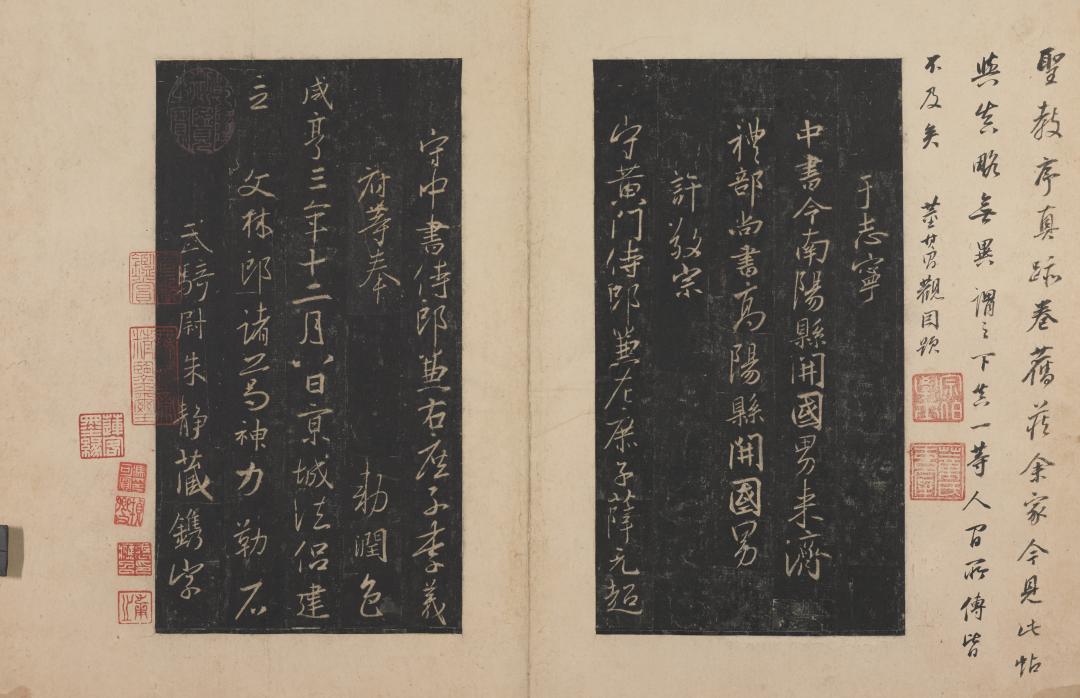 聖教序真跡卷舊藏余家今見此帖
與真略無異謂之下真一等人間所傳皆
不及矣 董其昌觀因題
于志寧
中書令南陽縣開國男来濟
禮部尚書高陽縣開國男
許敬宗
守黃門侍郎兼左庶子薛元超
守中書侍郎兼右庶子李義
府等奉 勅潤色
咸亨三年十二月八日京城法侶建
立 文林郎諸葛神力勒石
武騎尉朱静藏鐫字